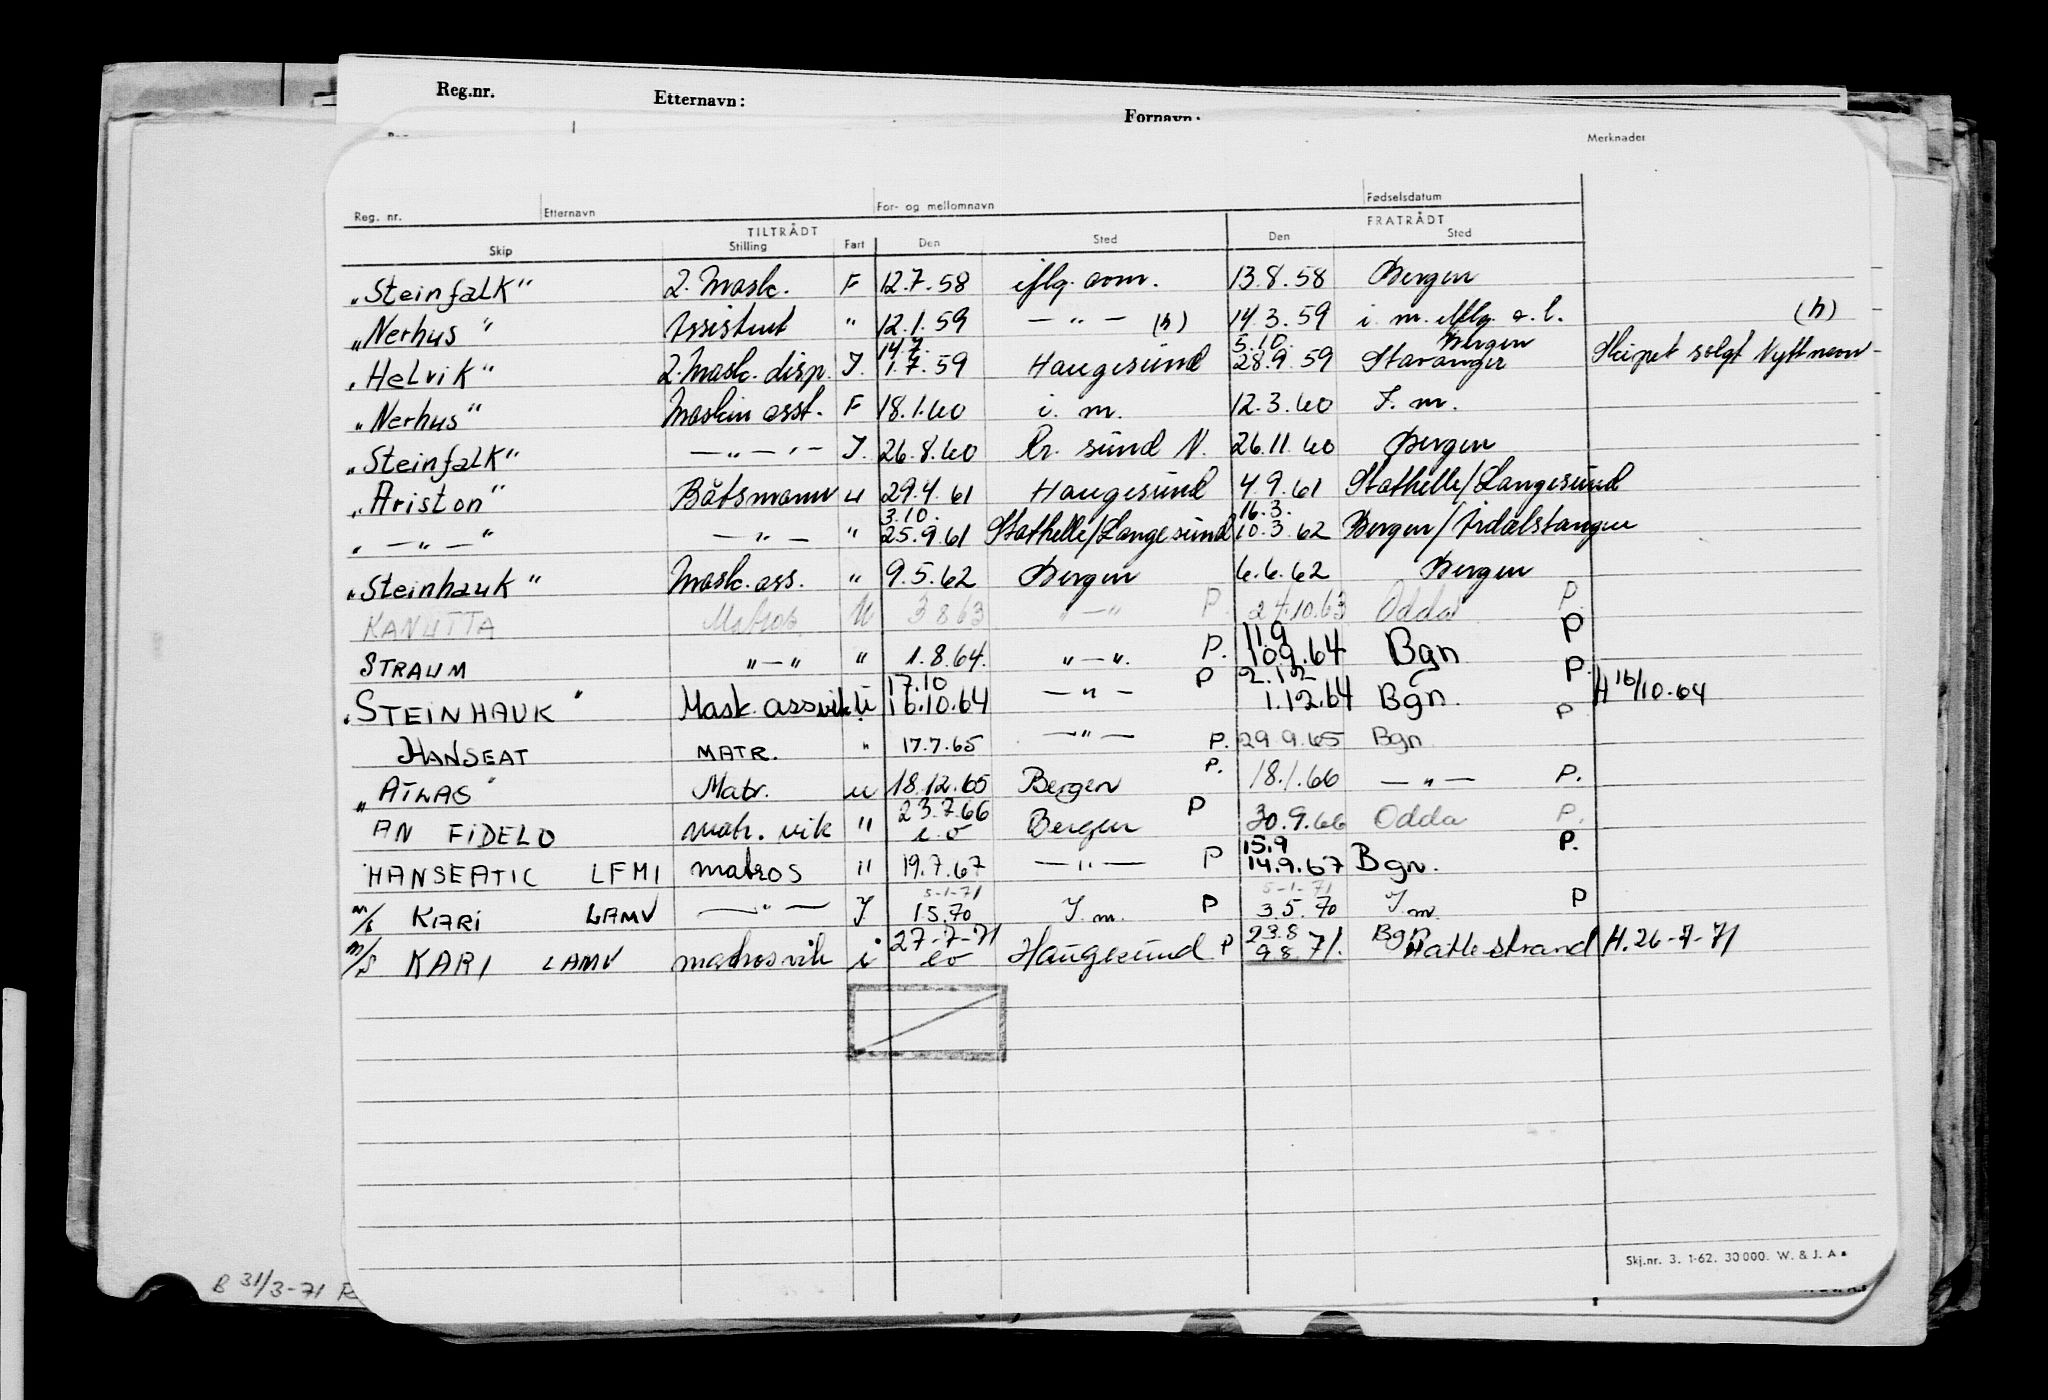 Reg.nr. Etternavn: Fornavn:
Merknader
Reg. nr. Etternavn For- og mellomnavn Fødselsdatum
TILTRÅDT FRATRÅDT
Skip Stilling Fart Den Sted Den Sted
"Steinfalk" 2. Mask. F 12.7.58 iflg. om. 13.8.58 Bergen
"Nerhus" Assistent " 12.1.59 — " — (h) 14.3.59 i. m. iflg. o. l. (h)
14.7. 5.10. Bergen
"Helvik" 2. Mask. disp. I. 1.7.59 Haugesund 28.9.59 Stavanger Skipet solgt Nytt navn -
"Nerhus" Maskin asst. F 18.1.60 i. m. 12.3.60 I. m.
"Steinfalk" — " — " — I. 26.8.60 Kr. sund N. 26.11.60 Bergen
"Ariston" Båtsmann u 29.4.61 Haugesund 4.9.61 Stathelle/Langesund
3.10. 16.3.
" — " — " — " — " 25.9.61 Stathelle/Langesund 10.3.62 Bergen/Årdalstangen
"Steinhauk" Mask. ass. " 9.5.62 Bergen 6.6.62 Bergen
KANUTTA Matros U 3 8 63 " — " P. 24.10.63 Odda P.
11.9
STRAUM " — " " 1.8.64. " — ". P. 10.9.64 Bgn P
17.10 2.12
"STEINHAUK" Mask. ass vik U 16.10.64 — " — P 1.12.64 Bgn. P. H 16/10-64
HANSEAT MATR. " 17.7.65 — " — P. 29 9.65 Bgn P
"ATLAS" Matr. u 18.12.65 Bergen P. 18.1.66 — " — P.
23.7.66
AN FIDELO matr. vik " e.o Bergen P 30.9.66 Odda P.
15.9
HANSEATIC LFMI matros " 19.7.67 — " — P 14.9.67 Bgn. P.
5-1-71 5-1-71
m/s KARI LAMV — " — I 1 5.70 I. m. P 3.5.70 I m. P
27-7-71 23.8 Bgn
m/s KARI LAMV matros vik i eo Haugesund P 9.8.71. Hattlestrand H. 26-7-71
Skj.nr. 3. 1-62. 30 000. W. & J. A
B 31/3-71